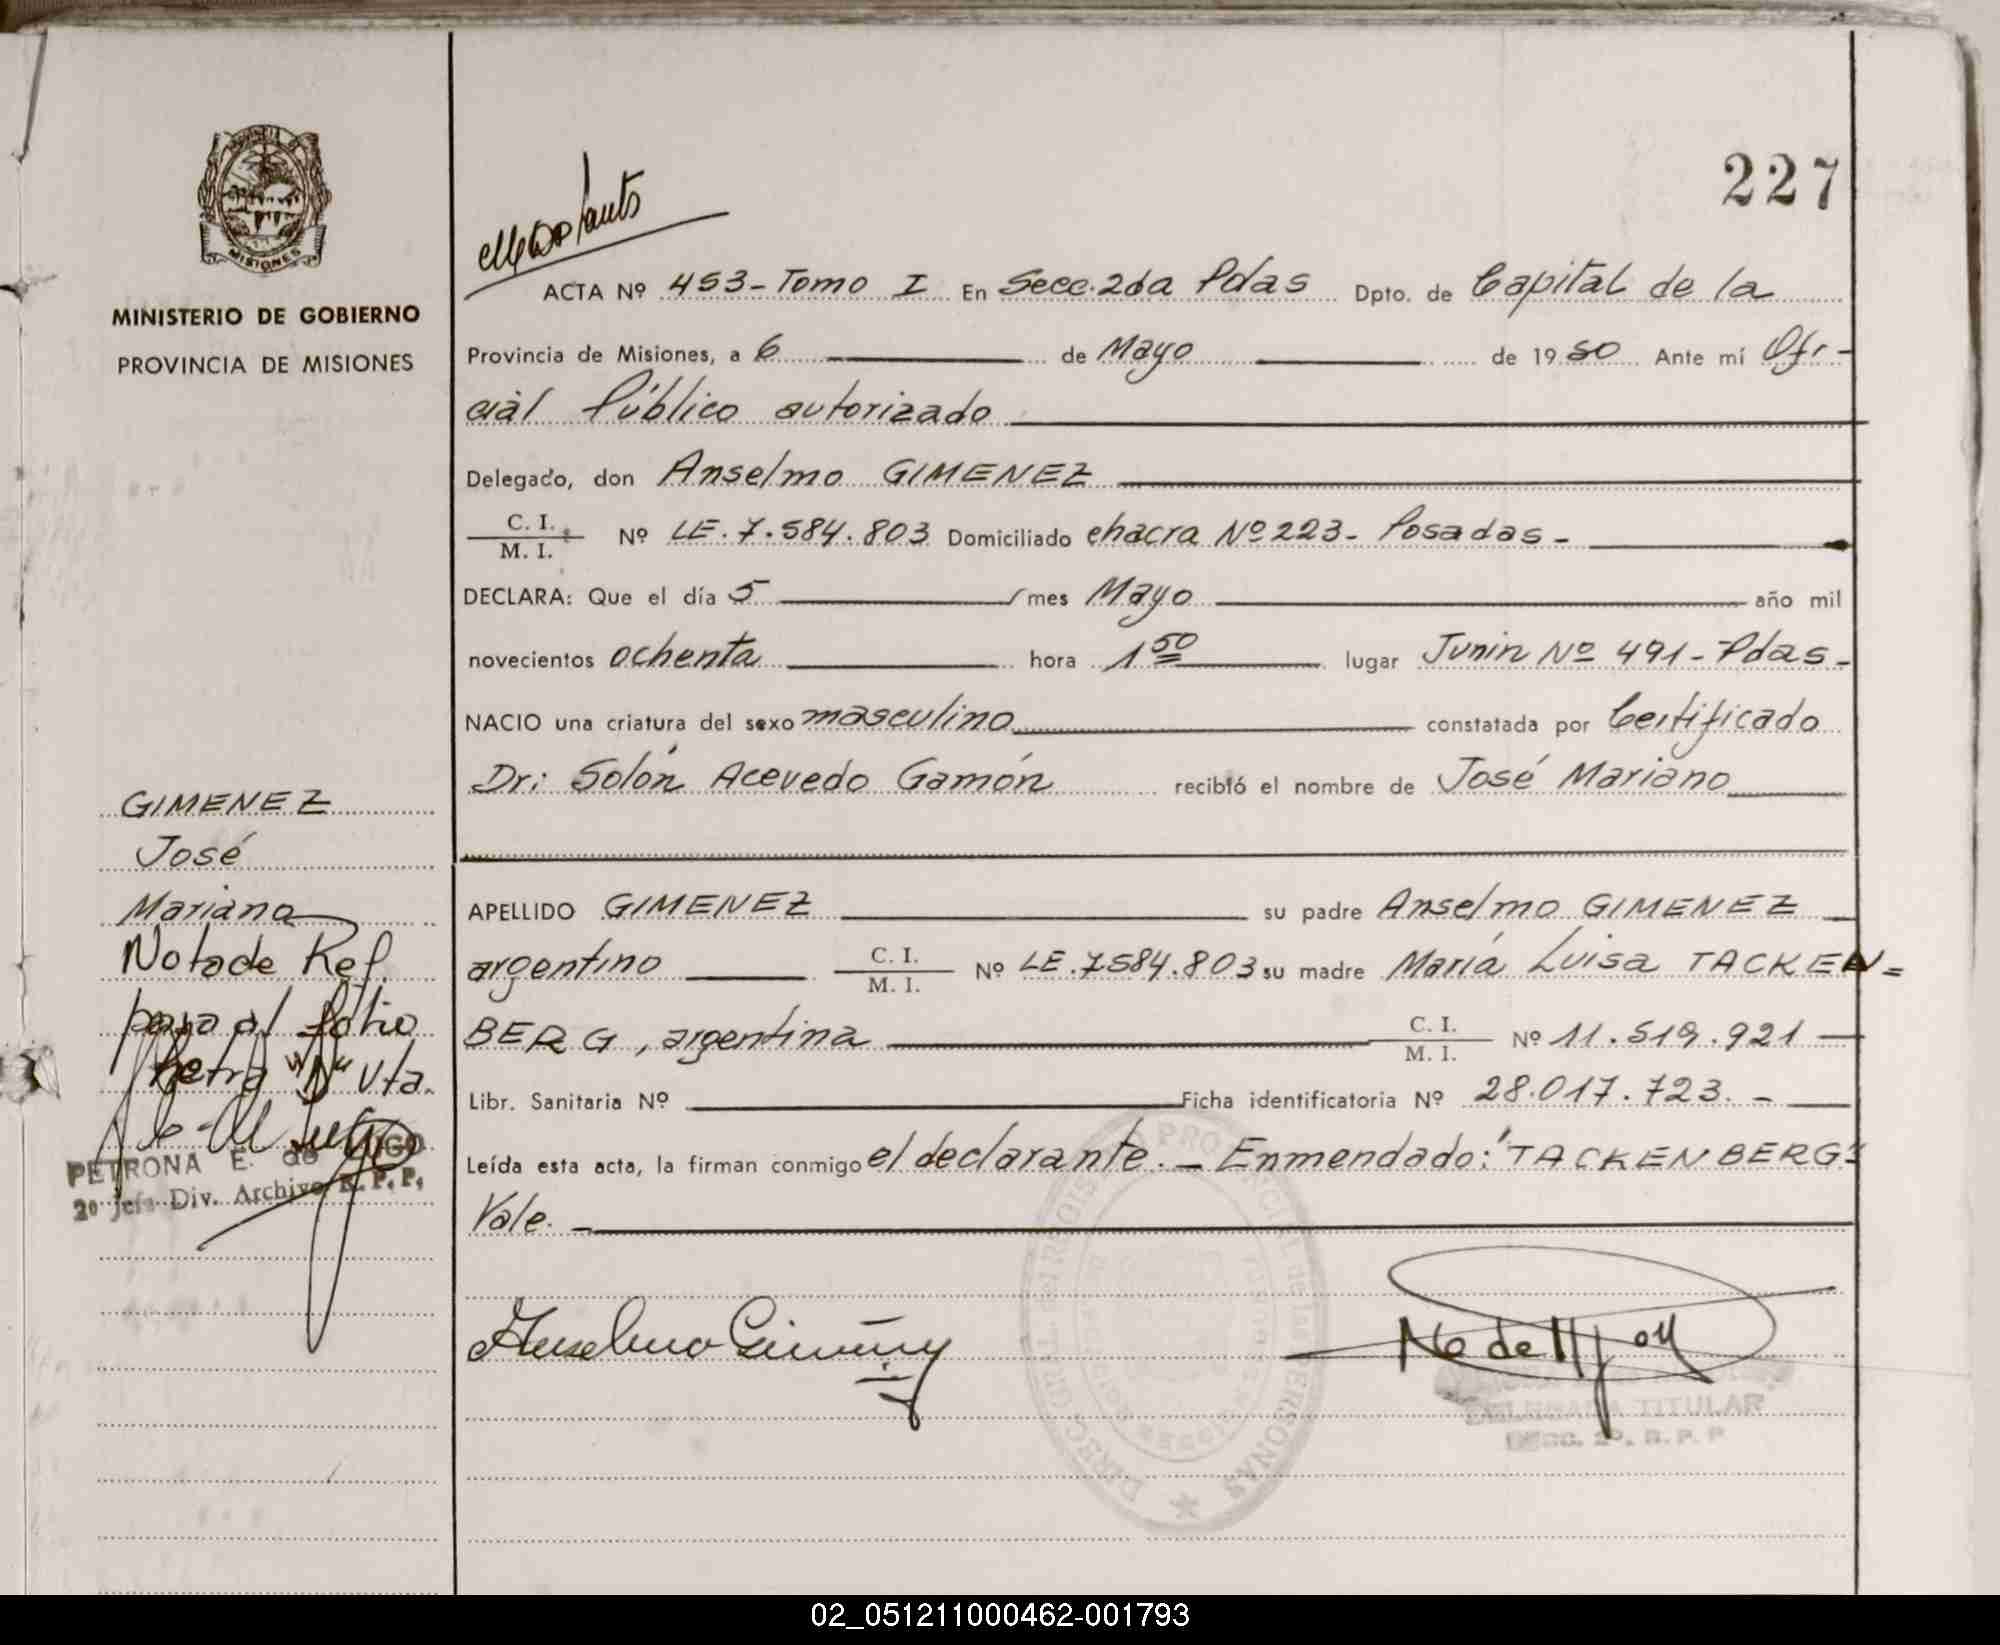 227
PROVINCIA
MISIONES
MINISTERIO DE GOBIERNO
PROVINCIA DE MISIONES
ACTA Nº 453-Tomo I En Secc. 2da Pdas Dpto. de Capital de la
Provincia de Misiones, a 6 de Mayo de 1980 Ante mí Ofi-
cial Público autorizado
Delegado, don Anselmo GIMENEZ
C. I.
M. I. Nº LE. 7.584.803 Domiciliado chacra Nº 223- Posadas-
DECLARA: Que el día 5 mes Mayo año mil
novecientos ochenta hora 1 50 lugar Junin Nº 491-Pdas-
NACIO una criatura del sexo masculino constatada por Certificado
Dr: Solón Acevedo Gamón recibió el nombre de José Mariano
GIMENEZ
José
Mariano
Nota de Ref.
pasa al folio
letra "D" Vta.
PETRONA E. de
2º Jefa Div. Archivo R. P. P.
APELLIDO GIMENEZ su padre Anselmo GIMENEZ
argentino C. I. M. I. Nº LE. 7584.803 su madre María Luisa TACKEN=
BERG, argentina C. I. M. I. Nº 11.519.921
Libr. Sanitaria Nº Ficha identificatoria Nº 28.017.723. -
Leída esta acta, la firman conmigo el declarante. - Enmendado: "TACKENBERG"
Vale. -
Anselmo Gimenez
DIREC. GRAL. del REGISTRO PROVINCIAL de las PERSONAS
DELEGADA TITULAR
SECC. 2º. R. P. P
02_051211000462-001793